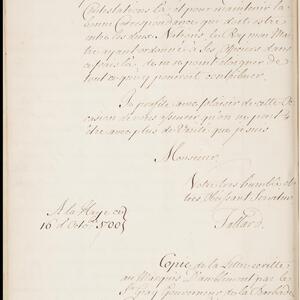 Contestations la et pour maintenir la
bonne Correspondance que doit estre
entre les deux Nations, le Roy mon Mai
tre ayant ordonné à Ses Sujets dans
ce pais là, de ne point eloigner de
tout ce qui y pourroit contribuer.
Je profite avec plaisir de cette Oc
casion de vous assurer qu'on ne peut
être avec plus de Verité que je suis
Monsieur
Votre tres humble et
tres Obeissant Serviteur
Tallard.
A la Haye ce
16 d'Octo
Copie de la Lettre ecritte
au Marquis D'amblimont par le
Sr Gray Gouverneur de la Barbade